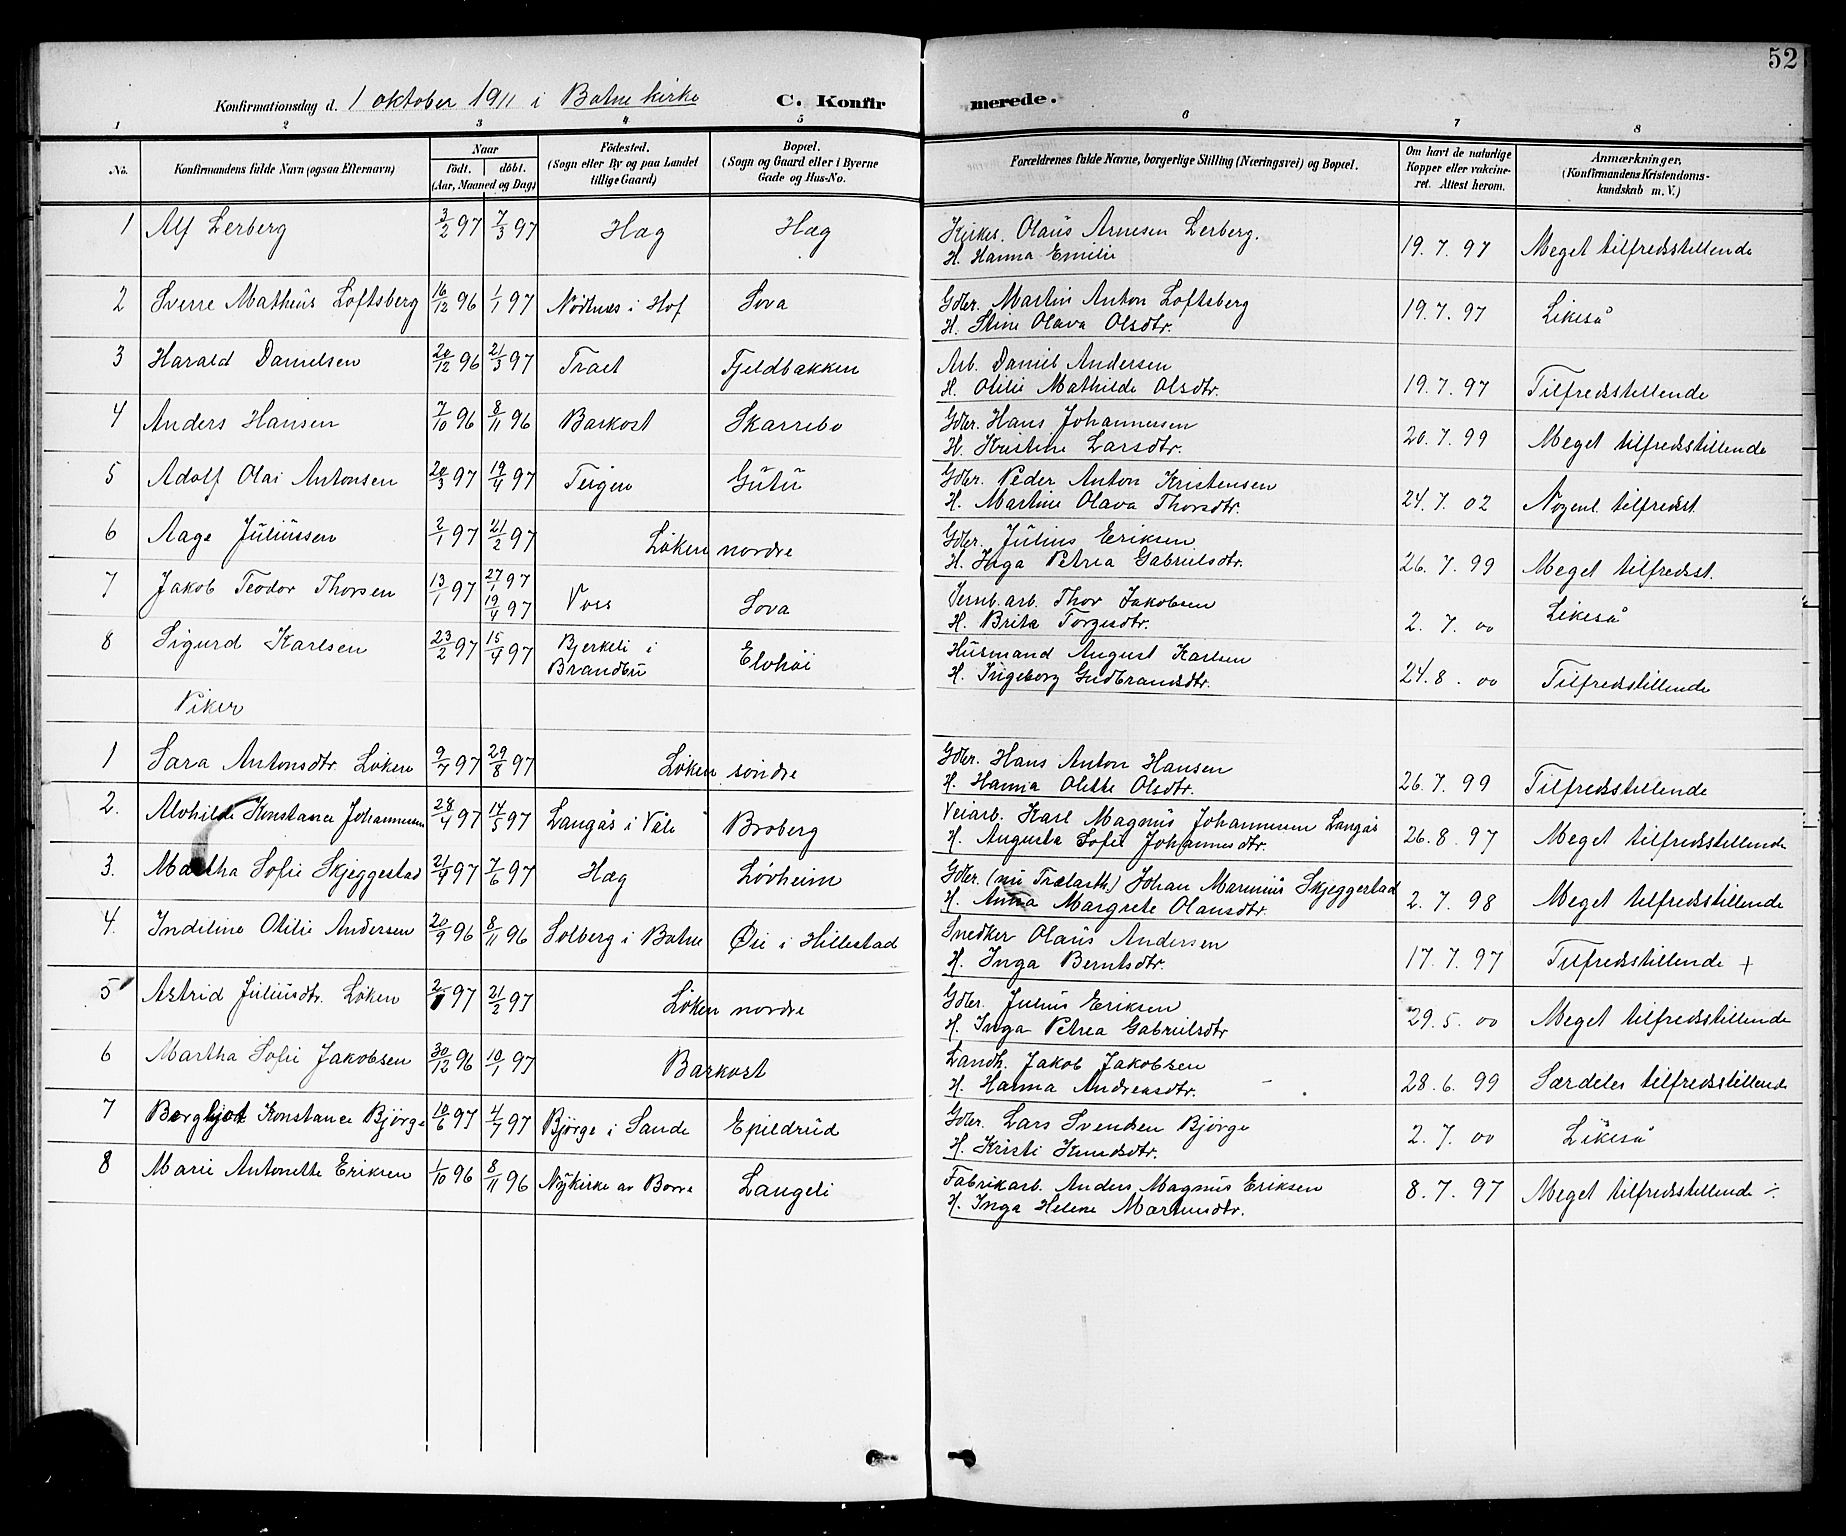 52
Konfirmationsdag d. 1 oktober 1911 i Botne kirke C. Konfirmerede.
1 2 3 4 5 6 7 8
No. Konfirmandens fulde Navn (ogsaa Efternavn) Naar födt. döbt. (Aar, Maaned og Dag) Födested. (Sogn eller By og paa Landet tillige Gaard) Bopæl. (Sogn og Gaard eller i Byerne Gade og Hus-No. Forældrenes fulde Navne, borgerlige Stilling (Næringsvei) og Bopæl. Om havt de naturlige Kopper eller vakcineret. Attest herom. Anmærkninger, (Konfirmandens Kristendomskundskab m. V.)
1 Alf Lerberg 3/2 97 7/3 97 Hæg Hæg Kirkes. Olaüs Arnesen Lerberg. H. Hanna Emilie 19.7.97 Meget tilfredsstillende
2 Sverre Matheüs Loftsberg 16/12 96 1/1 97 Nödtnes i Hof Sova Gdbr. Martin Anton Loftsberg H. Stine Olava Olsdtr. 19.7.97 Likeså
3 Harald Danielsen 20/12 96 21/3 97 Traet Fjeldbakken Arb. Daniel Andersen H. Otilie Mathilde Olsdtr. 19.7.97 Tilfredsstillende
4 Anders Hansen 7/10 96 8/11 96 Barkost Skarrebo Gdbr. Hans Johannesen H. Kristine Larsdtr. 20.7.99 Meget tilfredsstillende
5 Adolf Olai Antonsen 20/3 97 19/4 97 Teigen Gütü Gdbr. Peder Anton Kristensen H. Martine Olava Thorsdtr. 24.7.02 Nogenl. tilfredsst.
6 Aage Jüliüssen 2/1 97 21/2 97 Löken nordre Gdbr. Jülius Eriksen H. Inga Petrea Gabrielsdtr. 26.7.99 Meget tilfredsst.
7 Jakob Teodor Thorsen 13/1 97 27/1 97 19/4 97 Voss Sova Jernb.arb. Thor Jakobsen H. Brita Torgesdtr. 2.7.00 Likeså
8 Sigurd Karlsen 23/2 97 15/4 97 Bjerkeli i Brandbu Elvhöi Hüsmand August Karlsen H. Ingeborg Gudbrandsdtr. 24.8.00 Tilfredsstillende
Piker
1 Sara Antonsdtr. Löken 9/7 97 29/8 97 Löken söndre Gdbr. Hans Anton Hansen H. Hanna Olette Olsdtr. 26.7.99 Tilfredsstillende
2. Alvhilde Konstance Johannesen 28/4 97 14/5 97 Langås i Våle Broberg Veiarb. Karl Magnüs Johannesen Langås H. Augusta Sofie Johannesdtr. 26.8.97 Meget tilfredsstillende
3. Martha Sofie Skjeggestad 21/4 97 7/6 97 Hæg Lövheim Gdbr. (nü Trælasth.) Johan Marinius Skjeggestad H. Anna Margrete Olausdtr. 2.7.98 Meget tilfredsstillende
4. Indiline Otilie Andersen 20/9 96 8/11 96 Solberg i Botne Øie i Hillestad Snedker Olaüs Andersen H. Inga Berntsdtr. 17.7.97 Tilfredsstillende +
5 Astrid Jüliüsdtr. Löken 2/1 97 21/2 97 Löken nordre Gdbr. Julius Eriksen H. Inga Petrea Gabrielsdtr 29.5.00 Meget tilfredsstillende
6 Martha Sofie Jakobsen 30/12 96 10/1 97 Barkost Landh. Jakob Jakobsen H. Hanna Andreasdtr. 28.6.99 Særdeles tilfredsstillende
7 Bergljot Konstance Bjørge 10/6 97 4/7 97 Björge i Sande Epildrüd Gdbr. Lars Svendsen Bjørge H. Kristi Knudsdtr. 2.7.00 Likeså
8 Marie Antonette Eriksen 1/10 96 8/11 96 Nykirke av Borre Langeli Fabrikarb. Anders Magnüs Eriksen H. Inga Helene Martinsdtr. 8.7.97 Meget tilfredsstillende ÷